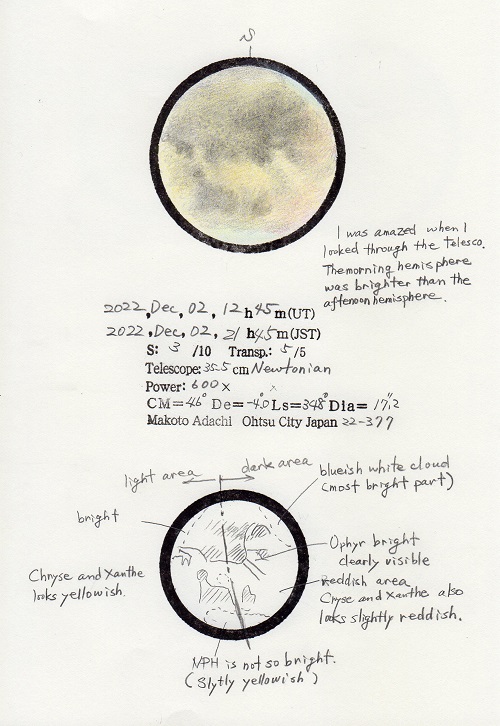 S
I was amazed when I
looked through the telesco.
The morning hemisphere
was brighter than the
afternoon hemisphere.
2022, Dec, 02, 12 h 45 m (UT)
2022, Dec, 02, 21 h 45 m (JST)
S: 3 /10 Transp.: 5 /5
Telescope: 35.5 cm Newtonian
Power: 600 x
CM=46° De=-4.0 Ls=348° Dia= 17".2
Makoto Adachi Ohtsu City Japan 22-377
light area
dark area
blueish white cloud
(most bright part)
bright
Ophyr bright
clearly visible
Chryse and Xanthe
looks yellowish.
Reddish area
Cryse and Xanthe also
looks slightly reddish.
NPH is not so bright.
(Slytly yellowish)